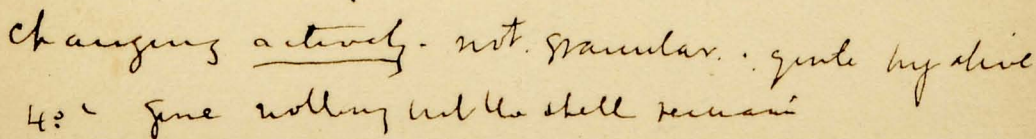 changing actively. not granular. quite hyaline
gone nothing but the shell remain